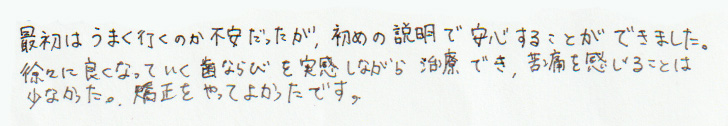 最初はうまく行くのか不安だったが、初めの説明で安心することができました。
徐々に良くなっていく歯ならびを実感しながら治療でき、苦痛を感じることは
少なかった。矯正をやってよかったです。